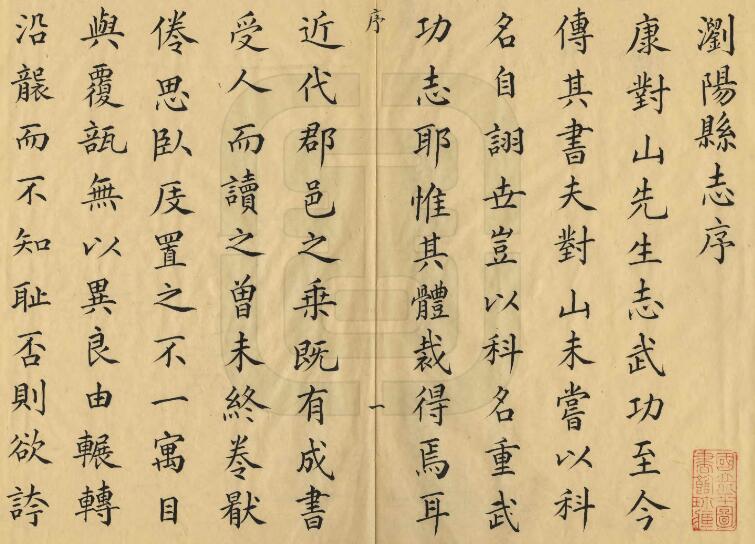 瀏陽縣志序
康對山先生志武功至今
傳其書夫對山未嘗以科
名自詡世豈以科名重武
功志耶惟其體裁得焉耳
序
一
近代郡邑之乗既有成書
受人而讀之曾未終卷厭
倦思臥庋置之不一寓目
與覆瓿無以異良由輾轉
沿襲而不知耻否則欲誇